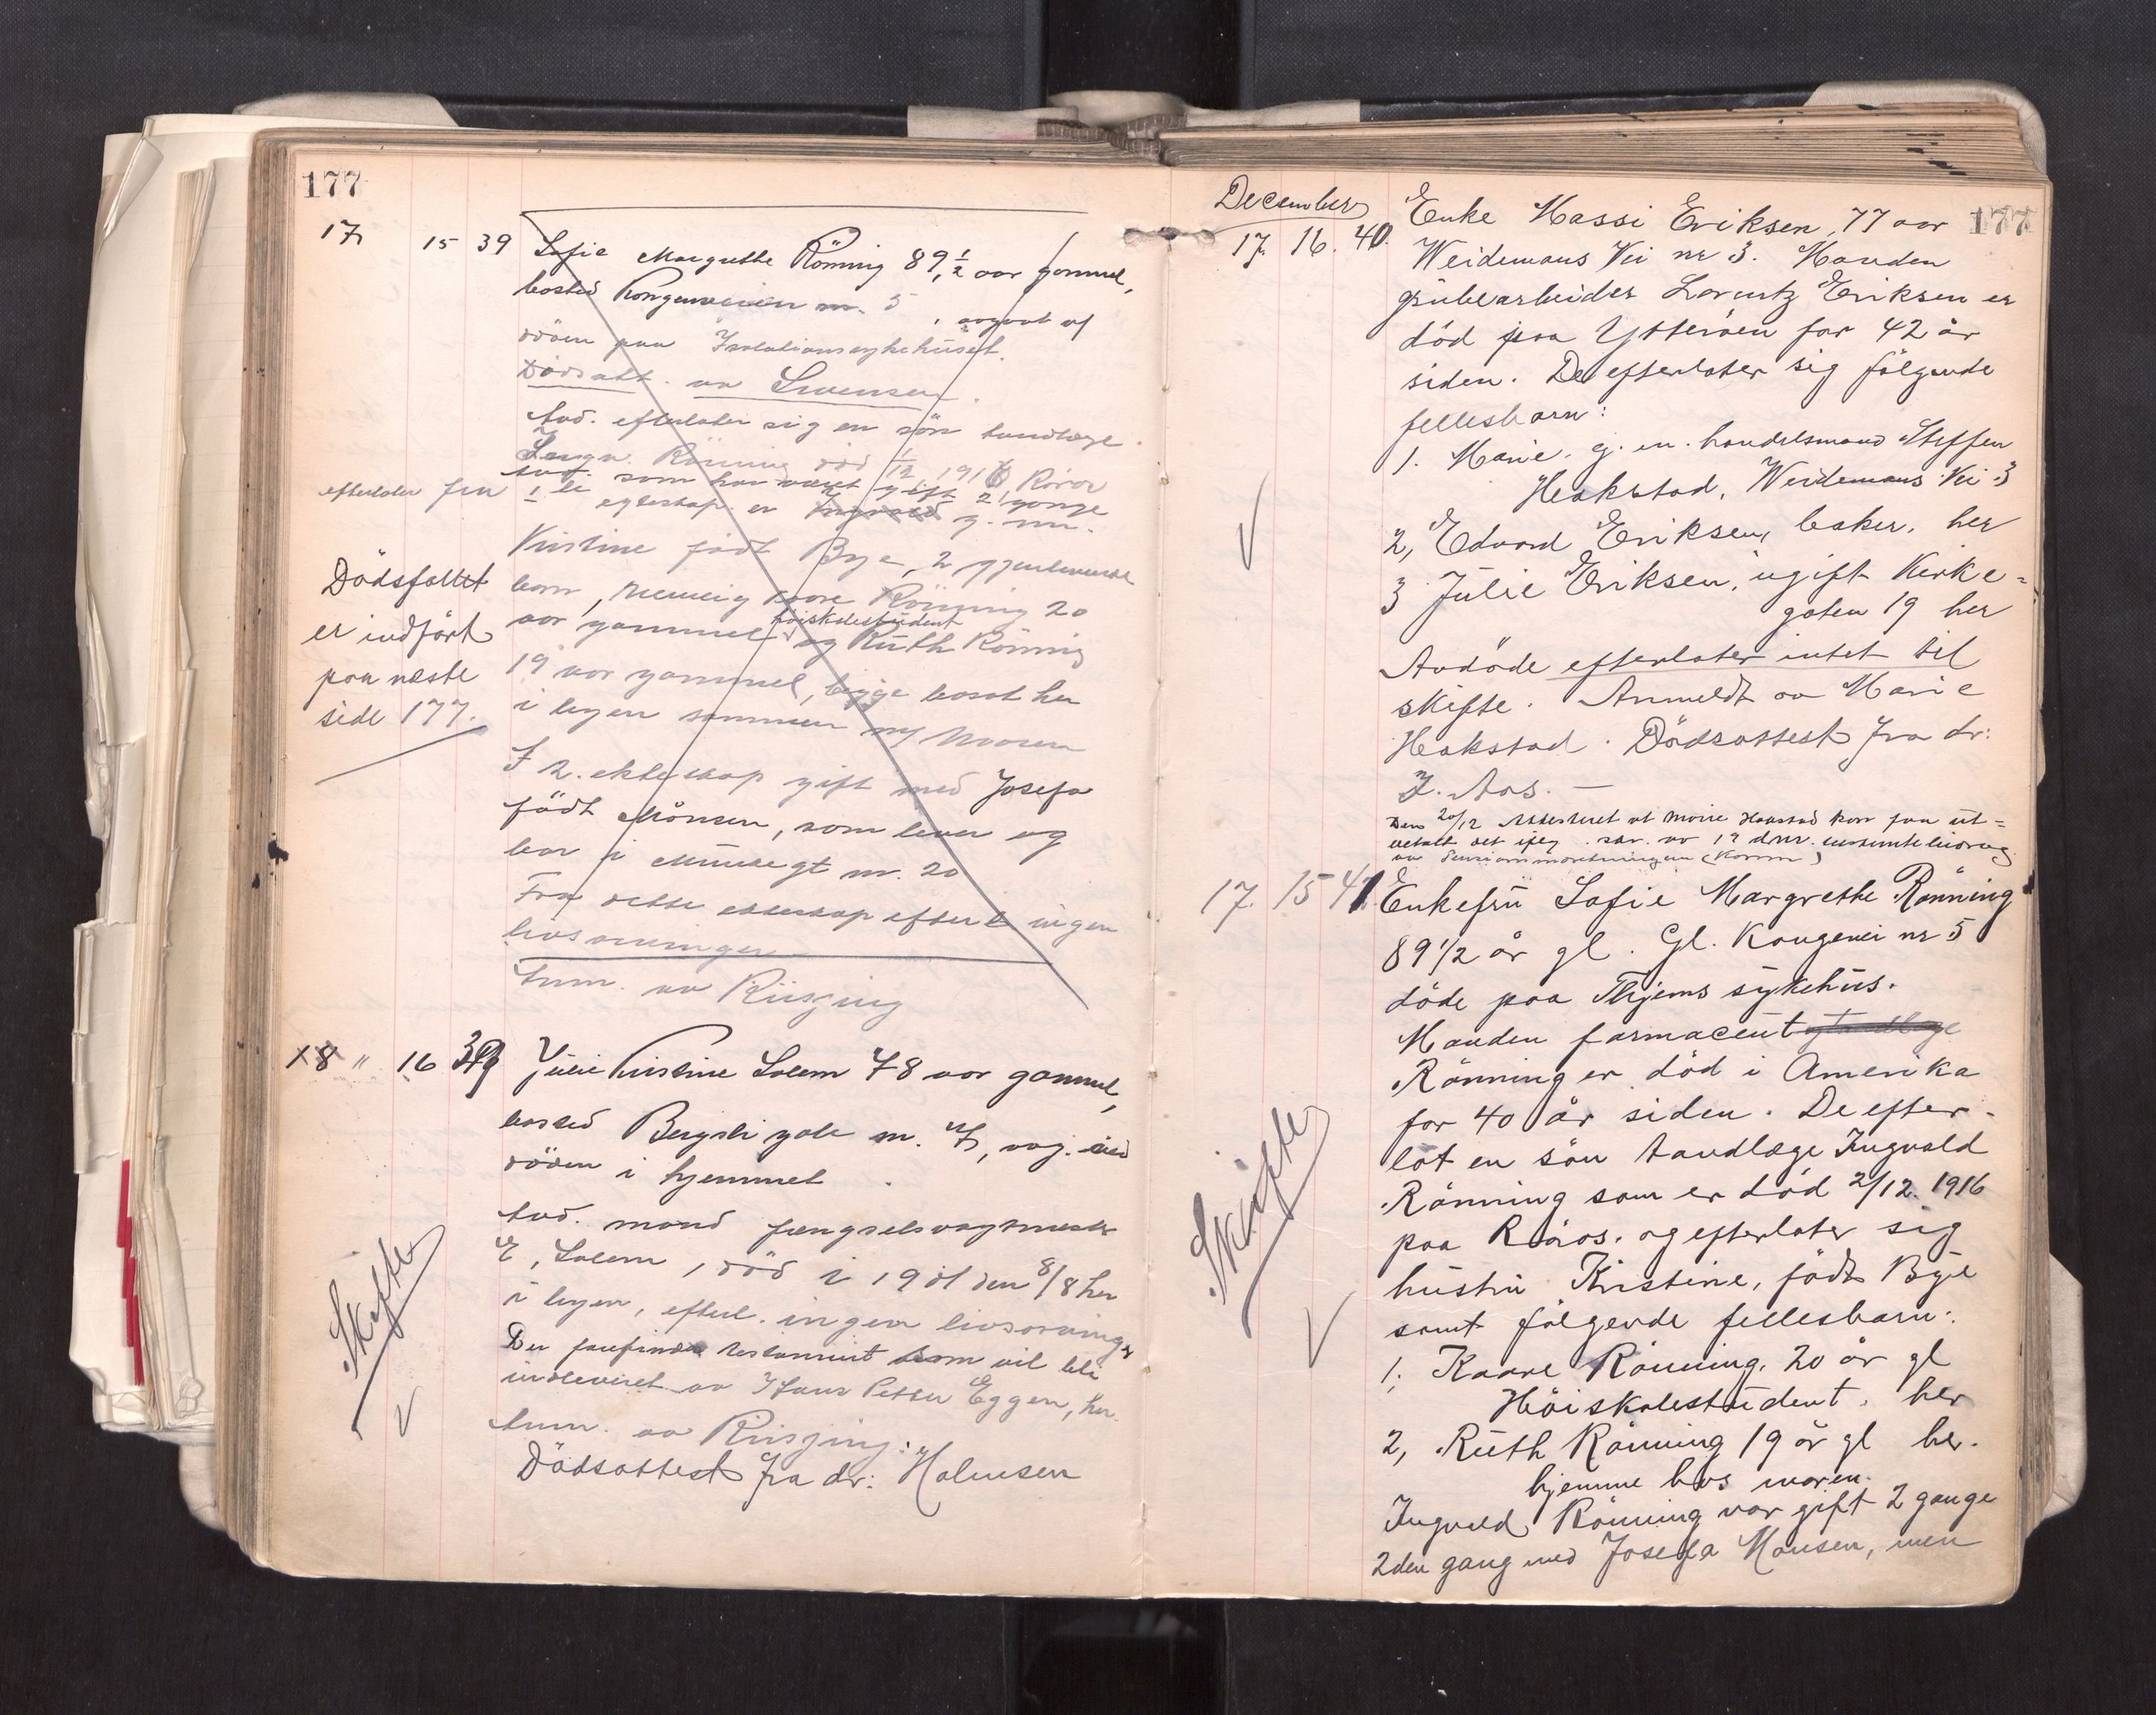 177
17 15 39 Sofie Margrethe Rönning 89 1/2 aar gammel,
bosted Kongeveien nr. 5
döden paa Isolationssykehuset.
Dödsatt. av Svensen.
Avd. efterlater sig en sön tandlæge
Rönning död 1/12 1916 Röros
avd. som har været gift 2 gange
efterlater fra 1 ste egteskap en g. m.
Kristine född Bye, 2 gjenlevende
barn, nemlig Kaare Rönning 20
höiskolestudent
aar gammel og Ruth Rönning
19 aar gammel, begge bosat her
i byen sammen m/ moren
Dödsfallet
er indfört
paa næste
side 177.
I 2. ekteskap gift med Josefa
född Mönsen, som lever og
bor i Munkegt nr. 20
Fra dette ekteskap efterl ingen
livsarvinger
Anm. av Riising
18 " 16 39 Julie Kristine Solem 78 aar gammel,
bosted Bergsli gate nr. 7, ved
döden i hjemmet.
Avd. mand fængselsvagtmester
E. Solem, död i 1901 den 8/8 her
i byen, efterl. ingen livsarvinger
Der forefindes testament som vil bli
indleveret av Hans Petter Eggen, her.
Anm. av Riising.
Dödsattest fra dr: Holmsen
Skifte
December
177
17. 16. 40. Enke Massi Eriksen, 77 aar
Weidemans Vei nr 3. Manden
grubearbeider Lorentz Eriksen er
död paa Ytteröen for 42 år
siden. De efterlater sig fölgende
fellesbarn:
1. Marie. g. m. handelsmand Steffen
Hakstad, Weidemans Vei 3
2, Edvard Eriksen, baker, her
3 Julie Eriksen, ugift Kirke=
gaten 19 her
Avdöde efterlater intet til
skifte. Anmeldt av Marie
Hakstad. Dödsattest fra dr:
J. Aas. —
Den 20/12 Attesteret at Marie Hakstad kan faa ut=
betalt
17. 15 41. Enkefru Sofie Margrethe Rönning
89 1/2 år gl. Gl. Kongevei nr 5
döde paa Thjems sykehus.
Manden farmaceut og tandlæge
Rönning er död i Amerika
for 40 år siden. De efter-
lot en sön tandlæge Ingvald
Rönning som er död 2/12. 1916
paa Röros. og efterlater sig
hustru Kristine, födt Bye
samt fölgende fellesbarn:
1; Kaare Rönning, 20 år gl
Höiskolestudent, her
2, Ruth Rönning 19 år gl her.
hjemme hos moren.
Ingvald Rönning var gift 2 gange
2den gang med Josefa Monsen, men
Skifte